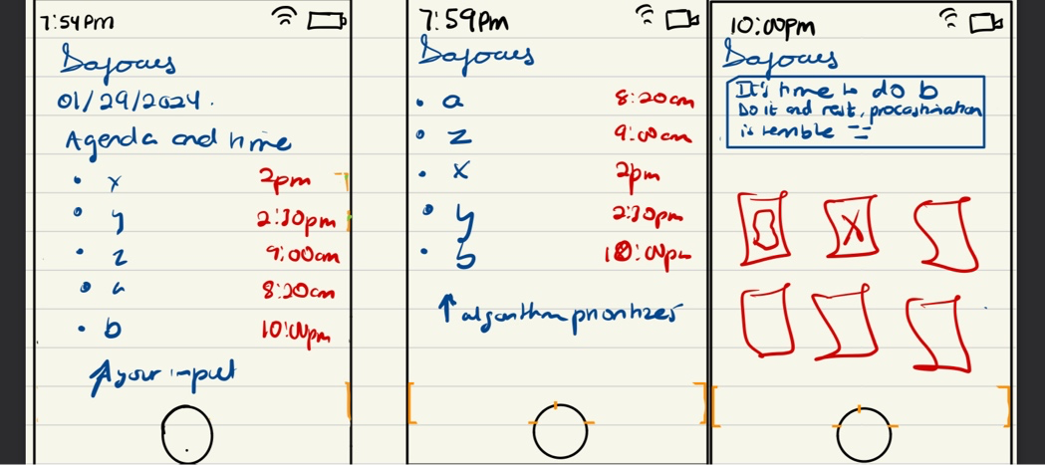 7:54pm
Dajoaes
01/29/2024.
Agenda and time
• x 2pm
• y 2:30pm
• z 9:00am
• a 8:20am
• b 10:00pm
↑ your input
7:59pm
Dajoaes
• a 8:20am
• z 9:00am
• x 2pm
• y 2:30pm
• b 10:00pm
↑ algorithm prioritizes
10:00pm
Dajoaes
It's time to do b
Do it and rest, procastination
is terrible
X